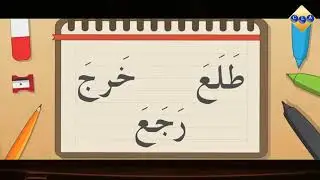 طَلَعَ خَرجَ
رَجَعَ